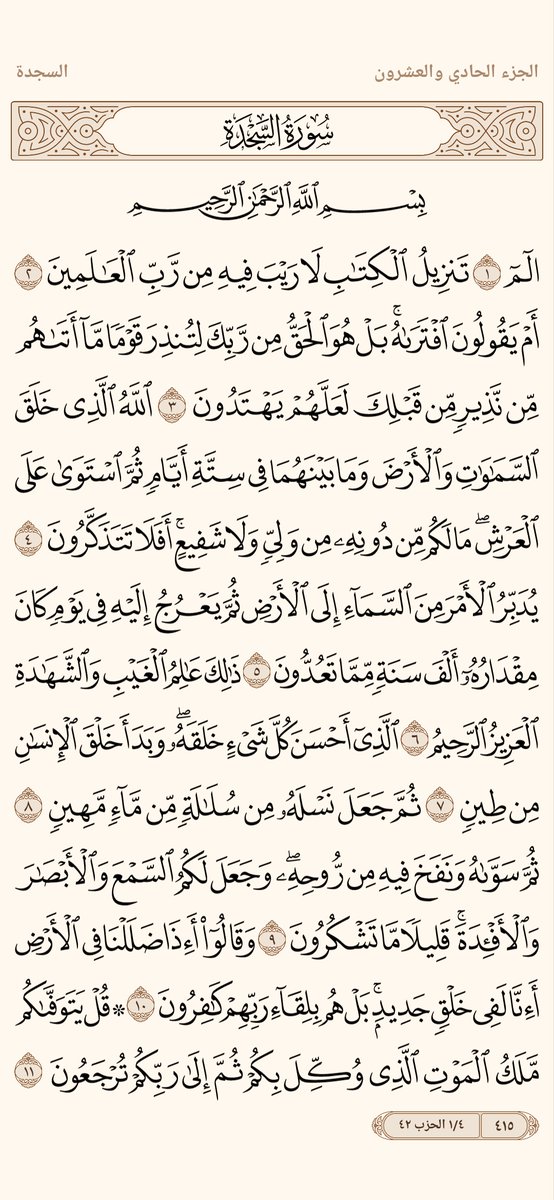 الجزء الحادي والعشرون السجدة
سُورَةُ السَّجْدَةِ
بِسْمِ ٱللَّهِ ٱلرَّحْمَٰنِ ٱلرَّحِيمِ
الٓمٓ ١ تَنزِيلُ ٱلْكِتَٰبِ لَا رَيْبَ فِيهِ مِن رَّبِّ ٱلْعَٰلَمِينَ ٢
أَمْ يَقُولُونَ ٱفْتَرَىٰهُ ۚ بَلْ هُوَ ٱلْحَقُّ مِن رَّبِّكَ لِتُنذِرَ قَوْمًا مَّآ أَتَىٰهُم
مِّن نَّذِيرٍ مِّن قَبْلِكَ لَعَلَّهُمْ يَهْتَدُونَ ٣ ٱللَّهُ ٱلَّذِى خَلَقَ
ٱلسَّمَٰوَٰتِ وَٱلْأَرْضَ وَمَا بَيْنَهُمَا فِى سِتَّةِ أَيَّامٍ ثُمَّ ٱسْتَوَىٰ عَلَى
ٱلْعَرْشِ ۖ مَا لَكُم مِّن دُونِهِۦ مِن وَلِىٍّ وَلَا شَفِيعٍ ۚ أَفَلَا تَتَذَكَّرُونَ ٤
يُدَبِّرُ ٱلْأَمْرَ مِنَ ٱلسَّمَآءِ إِلَى ٱلْأَرْضِ ثُمَّ يَعْرُجُ إِلَيْهِ فِى يَوْمٍ كَانَ
مِقْدَارُهُۥٓ أَلْفَ سَنَةٍ مِّمَّا تَعُدُّونَ ٥ ذَٰلِكَ عَٰلِمُ ٱلْغَيْبِ وَٱلشَّهَٰدَةِ
ٱلْعَزِيزُ ٱلرَّحِيمُ ٦ ٱلَّذِىٓ أَحْسَنَ كُلَّ شَىْءٍ خَلَقَهُۥ ۖ وَبَدَأَ خَلْقَ ٱلْإِنسَٰنِ
مِن طِينٍ ٧ ثُمَّ جَعَلَ نَسْلَهُۥ مِن سُلَٰلَةٍ مِّن مَّآءٍ مَّهِينٍ ٨
ثُمَّ سَوَّىٰهُ وَنَفَخَ فِيهِ مِن رُّوحِهِۦ ۖ وَجَعَلَ لَكُمُ ٱلسَّمْعَ وَٱلْأَبْصَٰرَ
وَٱلْأَفْـِٔدَةَ ۚ قَلِيلًا مَّا تَشْكُرُونَ ٩ وَقَالُوٓا۟ أَءِذَا ضَلَلْنَا فِى ٱلْأَرْضِ
أَءِنَّا لَفِى خَلْقٍ جَدِيدٍۭ ۚ بَلْ هُم بِلِقَآءِ رَبِّهِمْ كَٰفِرُونَ ١٠ ۞ قُلْ يَتَوَفَّىٰكُم
مَّلَكُ ٱلْمَوْتِ ٱلَّذِى وُكِّلَ بِكُمْ ثُمَّ إِلَىٰ رَبِّكُمْ تُرْجَعُونَ ١١
٤١٥ ١/٤ الحزب ٤٢